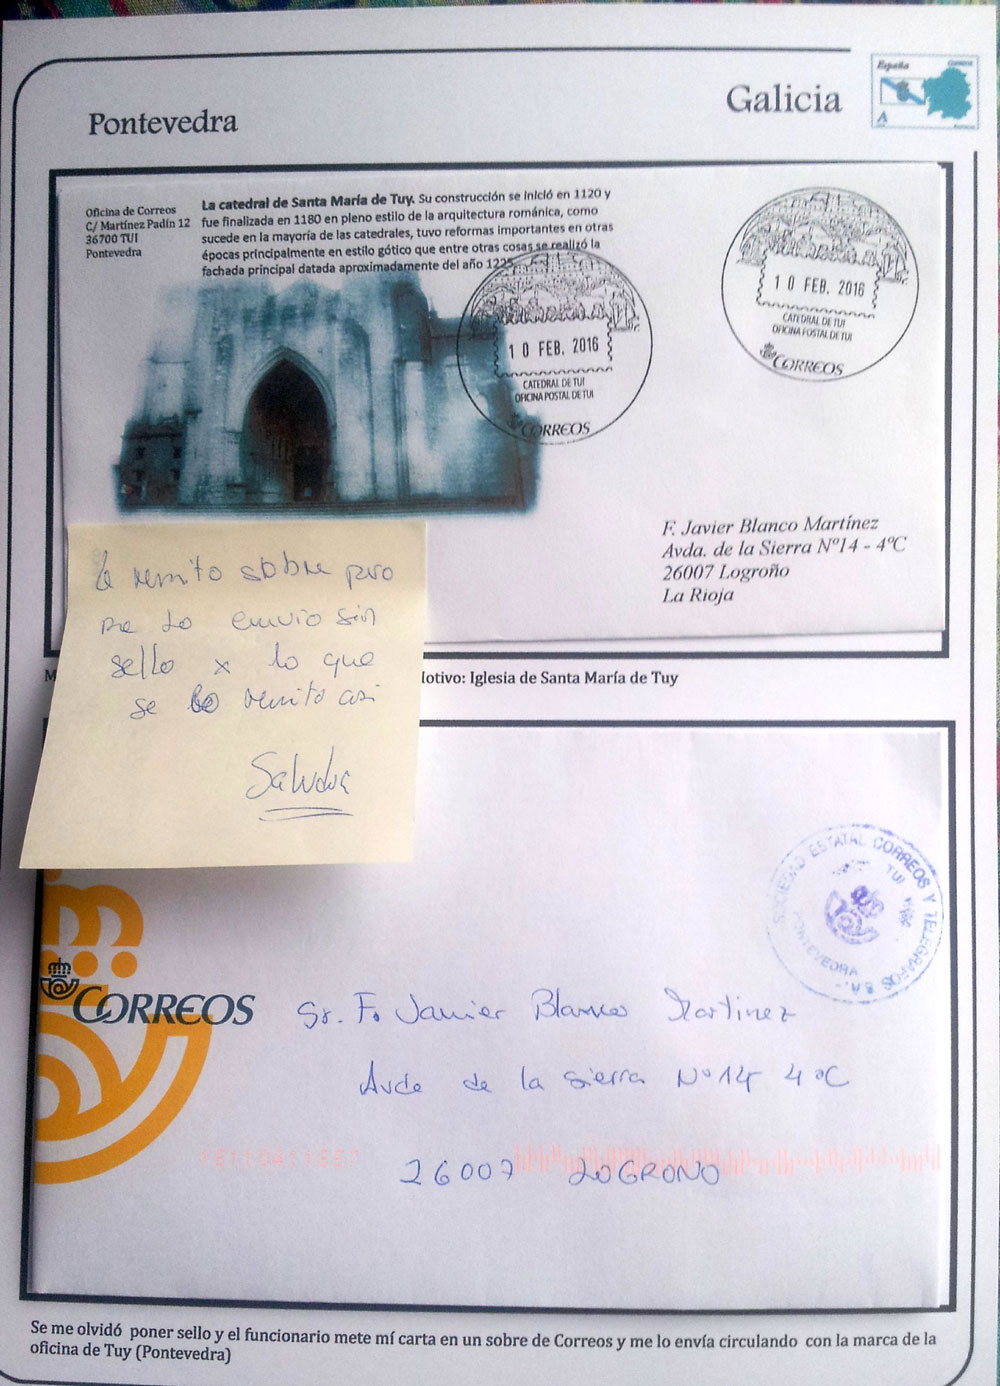 Pontevedra
Galicia
España
A
Oficina de Correos
C/ Martínez Padín 12
36700 TUI
Pontevedra
La catedral de Santa María de Tuy. Su construcción se inició en 1120 y
fue finalizada en 1180 en pleno estilo de la arquitectura románica, como
sucede en la mayoría de las catedrales, tuvo reformas importantes en otras
épocas principalmente en estilo gótico que entre otras cosas se realizó la
fachada principal datada aproximadamente del año 1225
10 FEB. 2016
CATEDRAL DE TUI
OFICINA POSTAL DE TUI
CORREOS
10 FEB. 2016
CATEDRAL DE TUI
OFICINA POSTAL DE TUI
CORREOS
F. Javier Blanco Martínez
Avda. de la Sierra Nº14 - 4ºC
26007 Logroño
La Rioja
le remito sobre pero
me lo envio sin
sello x lo que
se lo remito asi
M
otivo: Iglesia de Santa María de Tuy
SOCIEDAD ESTATAL CORREOS Y TELEGRAFOS S.A.
TUI
PONTEVEDRA
CORREOS
Sr. F. Javier Blanco Martinez
Avda de la Sierra Nº 14 4ºC
26007 LOGROÑO
Se me olvidó poner sello y el funcionario mete mí carta en un sobre de Correos y me lo envía circulando con la marca de la
oficina de Tuy (Pontevedra)